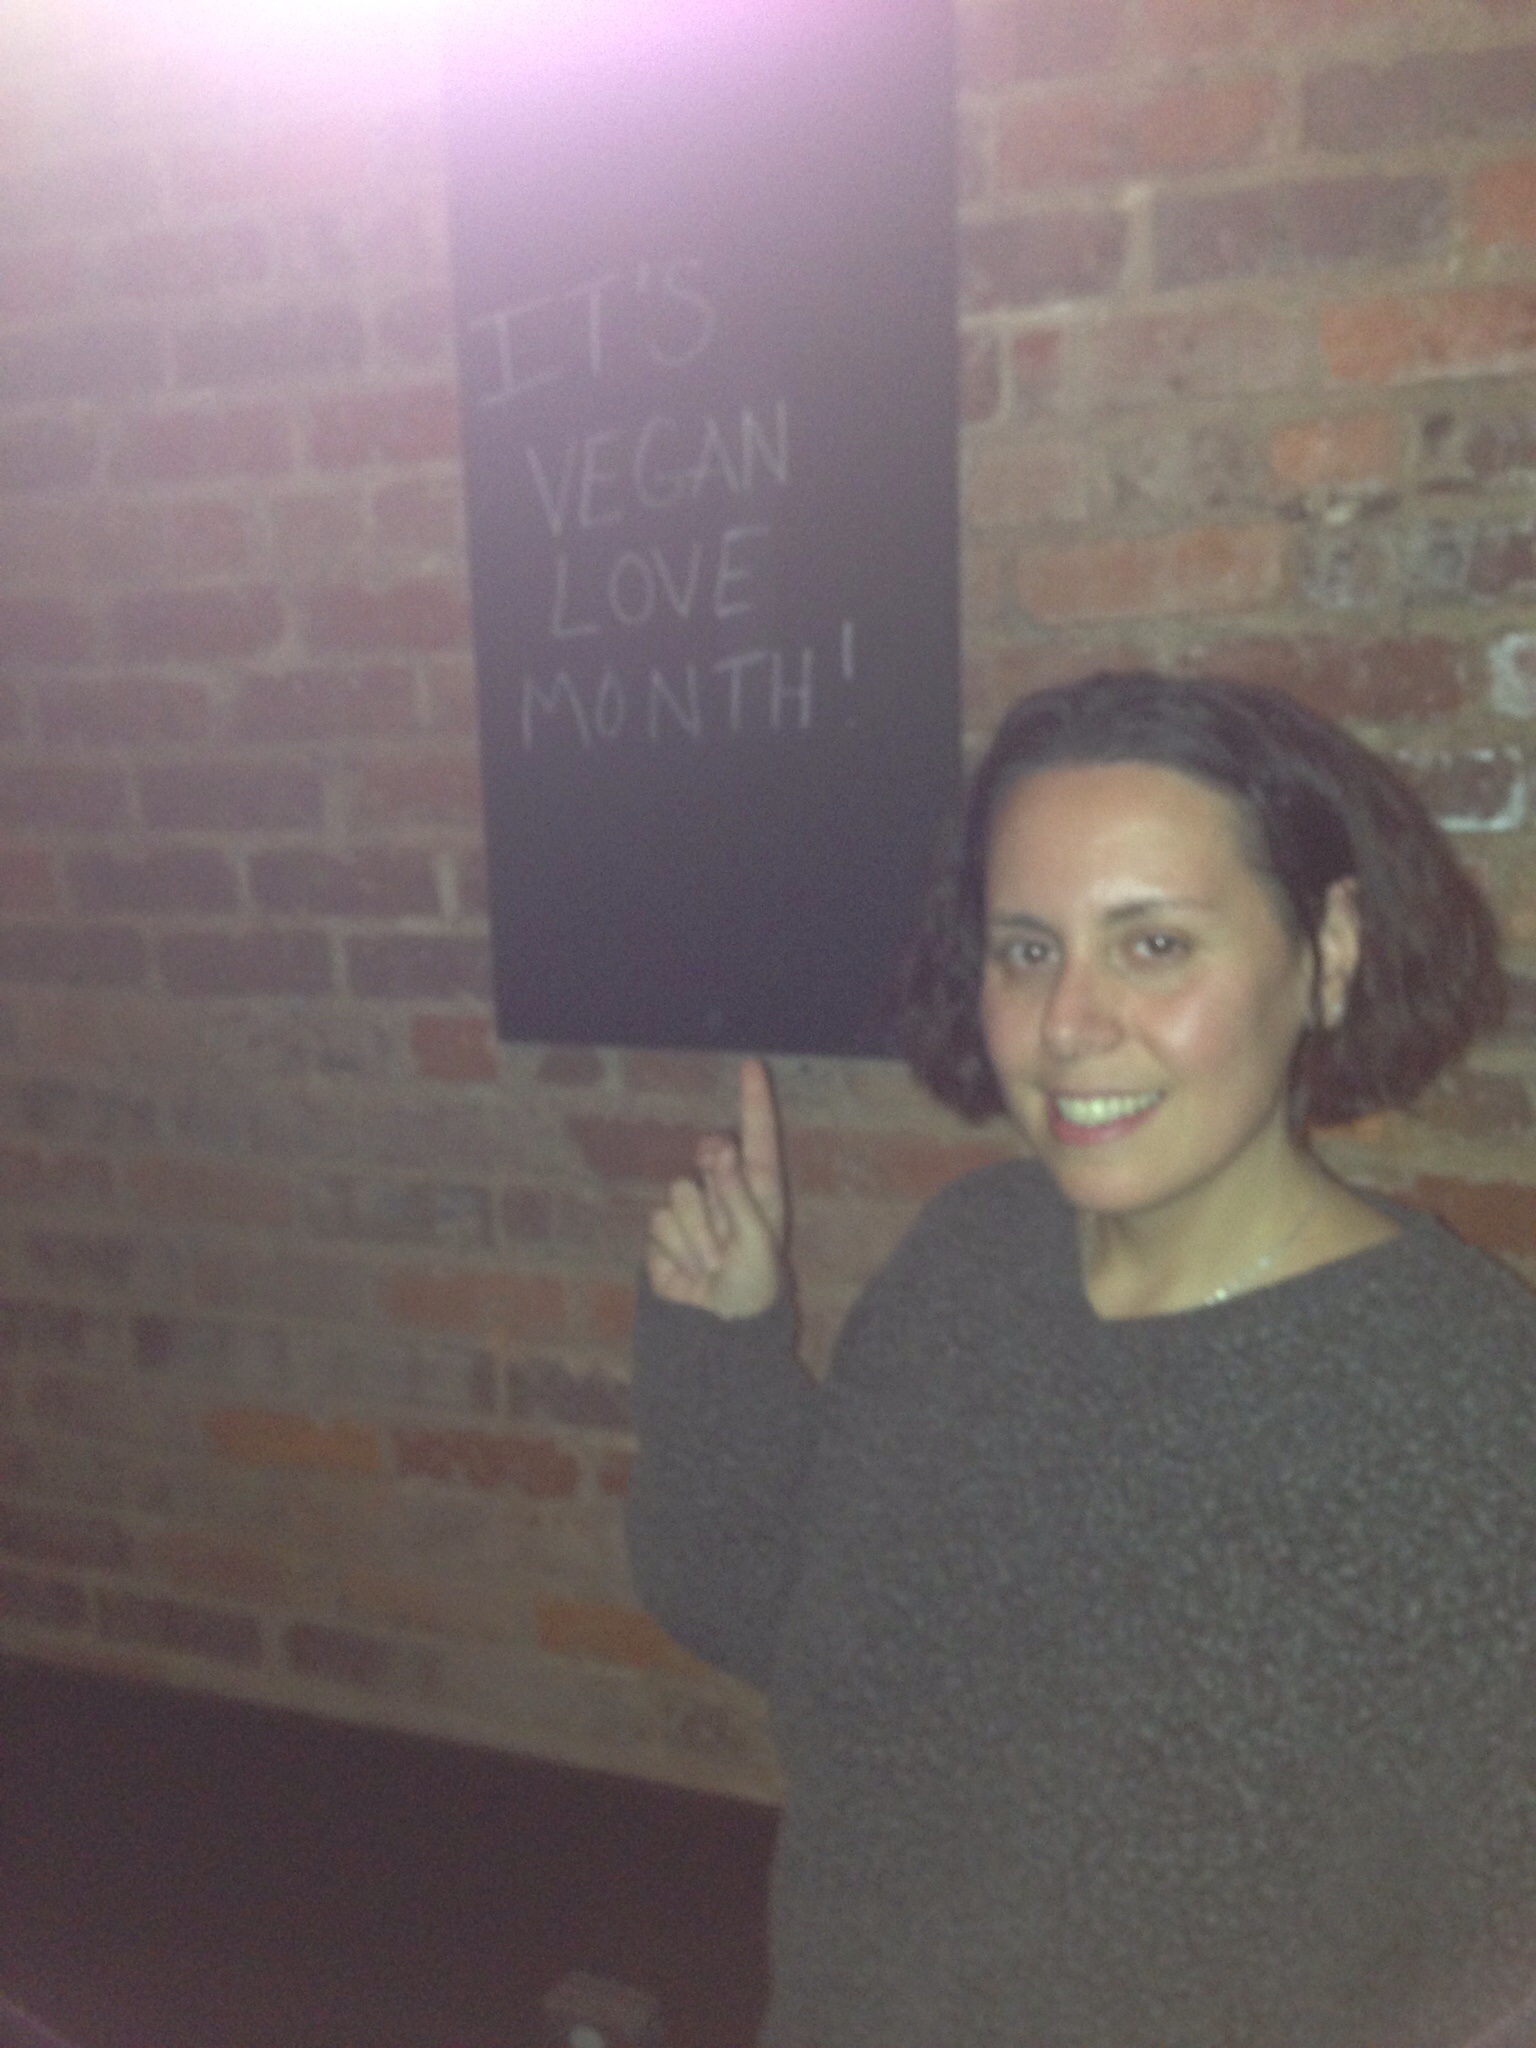 IT'S
VEGAN
LOVE
MONTH!